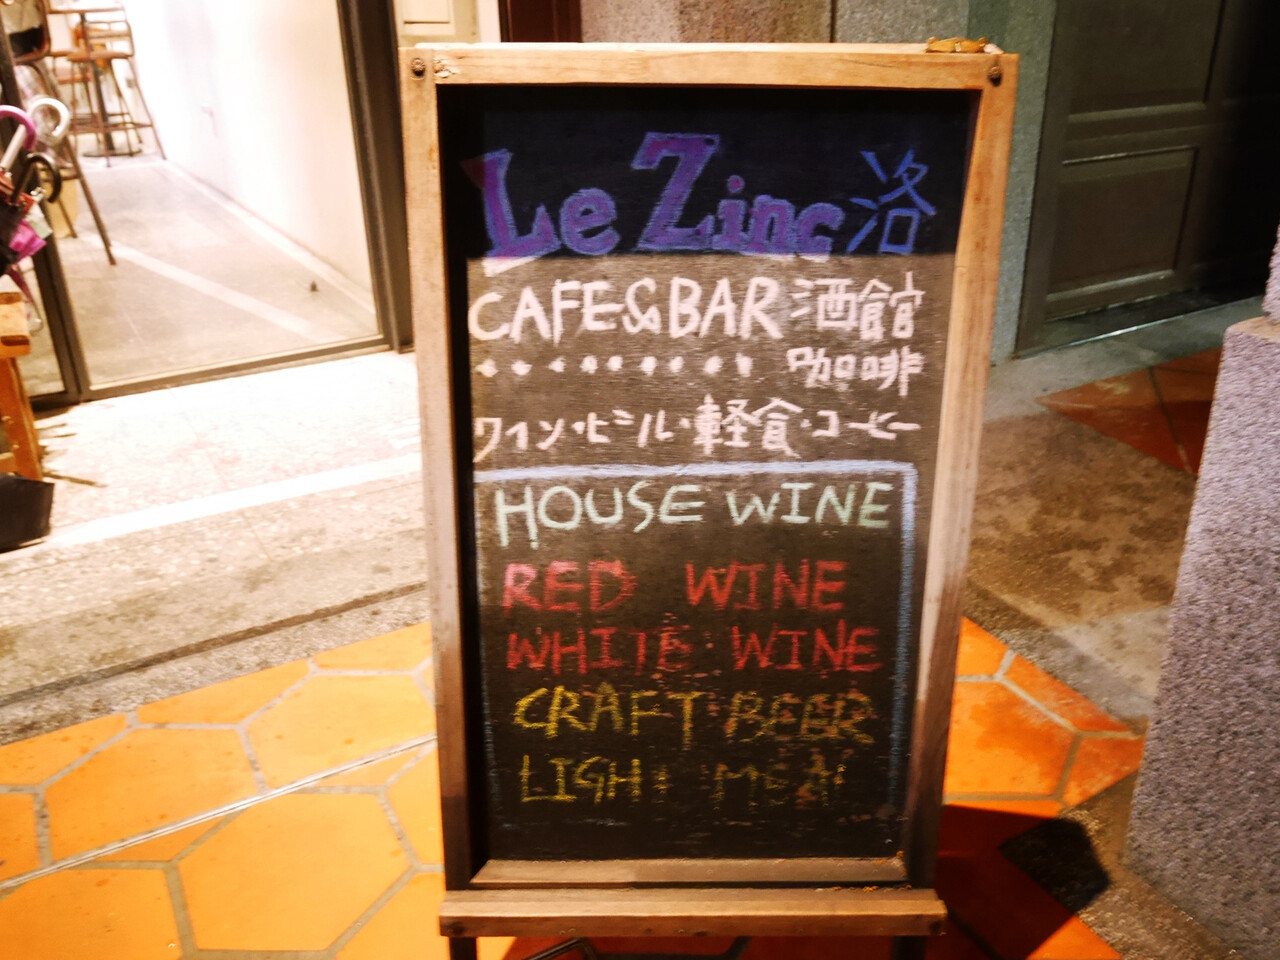 Le Zinc 洛
CAFE&BAR 酒館
咖啡
ワイン・ビール・軽食・コーヒー
HOUSE WINE
RED WINE
WHITE WINE
CRAFT BEER
LIGHT MEAL